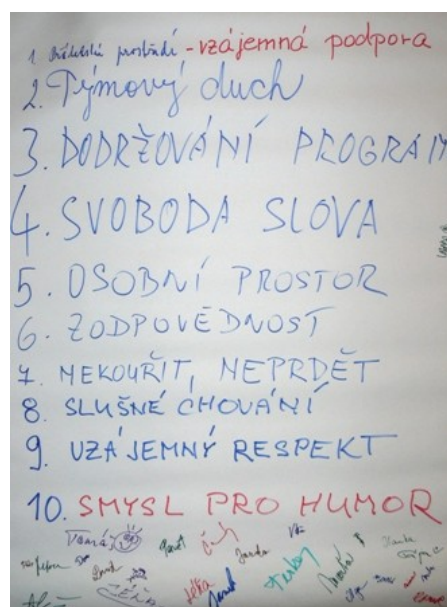 1. Přátelské prostředí - vzájemná podpora
2. Týmový duch
3. DODRŽOVÁNÍ PROGRAM
4. SVOBODA SLOVA
5. OSOBNÍ PROSTOR
6. ZODPOVĚDNOST
7. NEKOUŘIT, NEPRDĚT
8. SLUŠNÉ CHOVÁNÍ
9. VZÁJEMNÝ RESPEKT
10. SMYSL PRO HUMOR
Tomáš